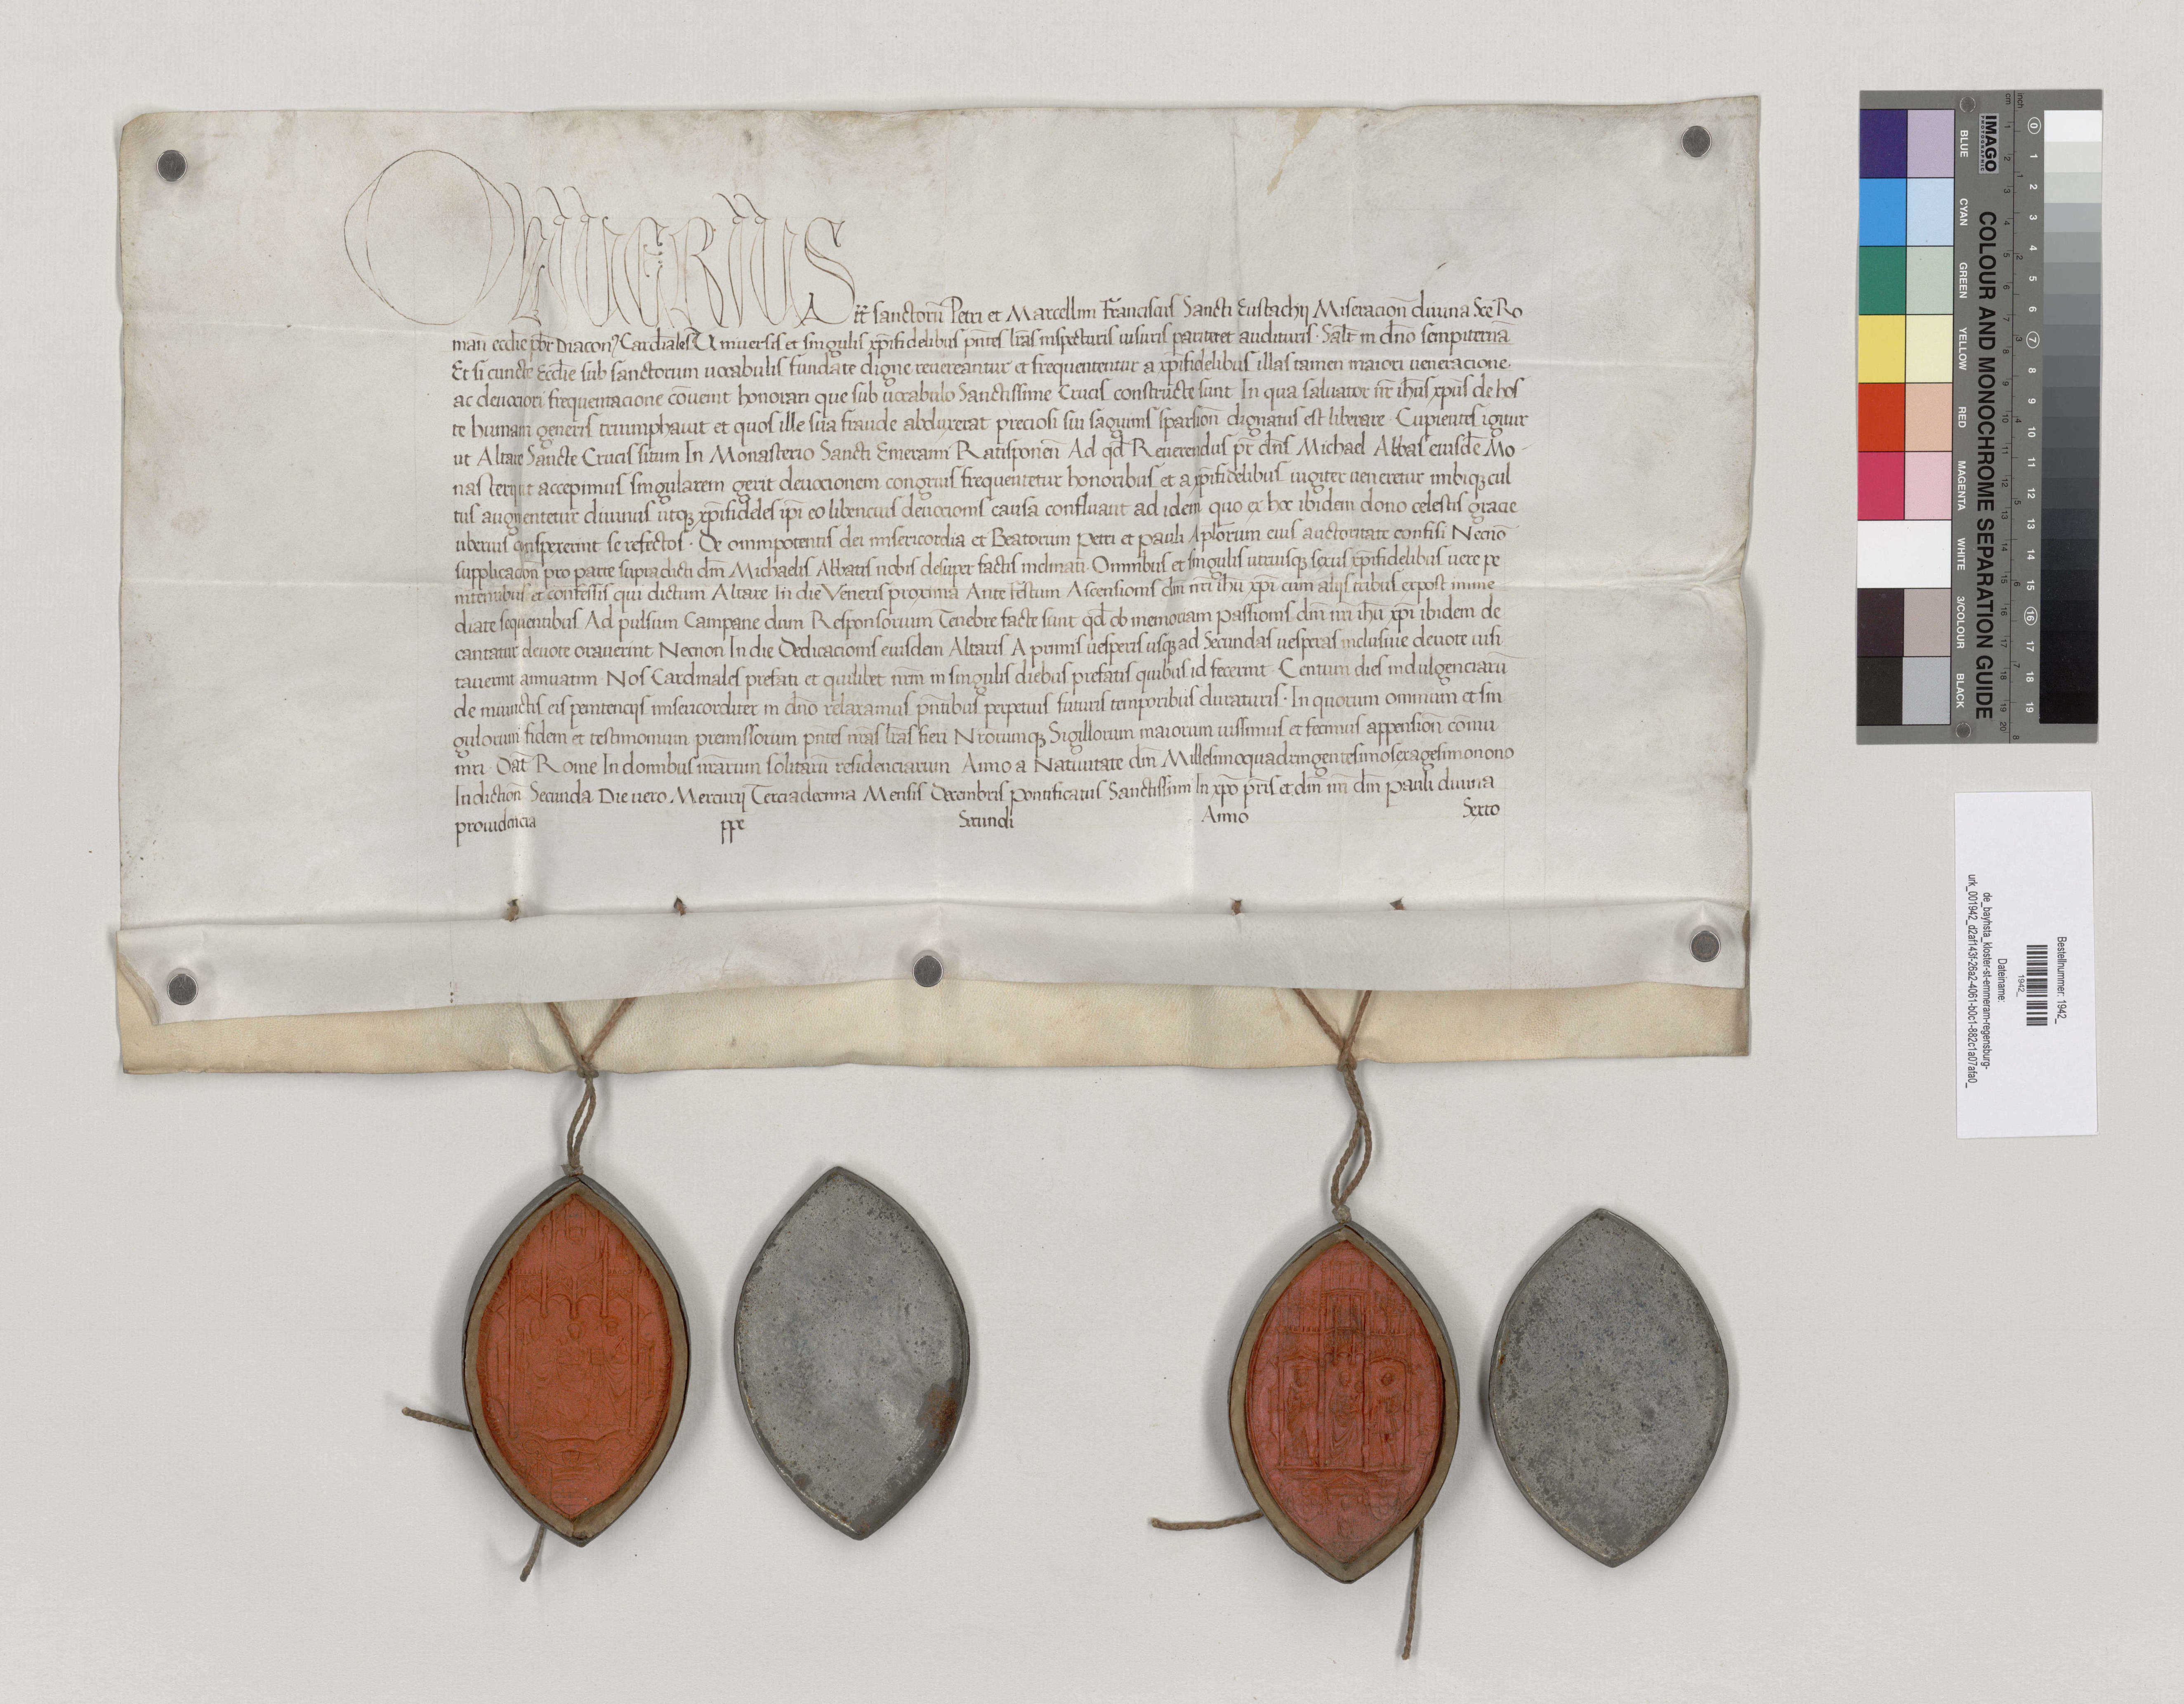 OLIUERIUS
tt̃ sanctorũ Petri et Marcellini Frãnciscus Sancti Eustachij Miseracioñ diuina Scẽ Ro
mañ eccliẽ pb̃r Diacon9 Cardĩales Uniuersis et singulis xp̃ifidelibus pñtes lr̃as inspecturis uisuris pariter et audituris · Salt̃ in dño sempiternã
Et si cuncte Eccliẽ sub sanctorum uocabulis fundate digne reuereantur et frequententur a xp̃ifidelibus illas tamen maiori ueneracione
ac deuociori frequentacione cõuenit honorari que sub uocabulo Sanctissime Crucis constructe sunt In qua saluator nr̃ ihũs xp̃us de hos
te humani generis triumphauit et quos ille sua fraude abduxerat preciosi sui saguinis sparsioñ dignatus est liberare · Cupientes igitur
ut Altare Sancte Crucis situm In Monasterio Sancti Emerami Ratisponeñ Ad qd̃ Reuerendus pr̃ dñs Michael Abbas eiusdẽ Mo-
nasterij ut accepimus singularem gerit deuocionem congruis frequentetur honoribus et a xp̃ifidelibus iugiter ueneretur inibiqꝫ cul
tus augmentetur diuinus utqꝫ xp̃ifideles ip̃i eo libencius deuocionis causa confluant ad idem quo ex hoc ibidem dono celestis gracie
uberius conspexerint se refectos · De omnipotentis dei misericordia et Beatorum Petri et Pauli Aplõrum eius auctoritate confisi Necnõ
supplicacoñ pro parte supradicti dñi Michaelis Abbatis nobis desuper factis inclinati · Omnibus et singulis utriusqꝫ sexus xp̃ifidelibus uere pe
nitentibus et confessis qui dictum Altare In die Veneris proxima Ante festum Ascensionis dñi nr̃i ihũ xp̃i cum alijs tribus expost imme
diate sequentibus Ad pulsum Campane dum Responsorium Tenebre facte sunt qd̃ ob memoriam Passionis dñi nr̃i ihũ xp̃i ibidem de
cantatur deuote orauerint Necnon In die Dedicacionis eiusdem Altaris A primis uesperis usqꝫ ad Secundas uesperas inclusiue deuote uisi
tauerint annuatim · Nos Cardinales prefati et quilibet nr̃m in singulis diebus prefatis quibus id fecerint · Centum dies indulgenciarũ
de iniunctis eis penitencijs misericorditer in dño relaxamus pñtibus perpetuis futuris temporibus duraturis · In quorum omnium et sin
gulorum fidem et testimonium premissorum pñtes nr̃as lr̃as fieri Nr̃orumqꝫ Sigillorum maiorum iussimus et fecimus appensioñ cõmu
niri Dat̃ Rome In domibus nr̃arum solitarũ residenciarum Anno a Natiuitate dñi Millesimoquadringentesimosexagesimonono
Indictioñ Secunda Die uero Mercurij Terciadecima Mensis Decembris Pontificatus Sanctissimi In xpõ pr̃is et dñi nr̃i dñi Pauli diuina
prouidencia ppe Secundi Anno Sexto
IMAGO
PHOTOGRAPHIC
COLOUR AND MONOCHROME SEPARATION GUIDE
BLUE CYAN GREEN YELLOW RED MAGENTA WHITE 3/COLOUR BLACK
Bestellnummer: 1942_
1942_
Dateiname:
de_bayhsta_kloster-st-emmeram-regensburg-
urk_001942_d2af143f-26a2-4061-b0c1-882c1a07afa0_